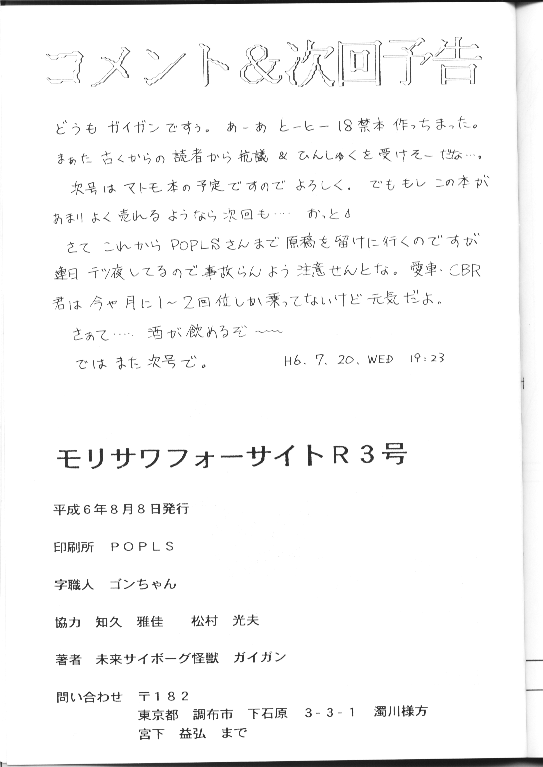 コメント＆次回予告
どうも ガイガンですぅ。 あーあ とーとー 18禁本 作っちまった。
まぁた 古くからの 読者から 抗議 & ひんしゅくを 受けそーだな…。
次号は マトモ本の予定ですので よろしく。 でももし この本が
あまり よく 売れる ようなら 次回も… おっと
さて これから POPLSさんまで 原稿を 届けに行くのですが
連日 テツ夜してるので 事故らんよう 注意せんとな。 愛車・CBR
君は 今や 月に 1〜2回位しか 乗ってないけど 元気だよ。
さぁて…… 酒が飲めるぞ〜〜
では また 次号で。 H6. 7. 20. WED 19:23
モリサワフォーサイトＲ３号
平成６年８月８日発行
印刷所 ＰＯＰＬＳ
字職人 ゴンちゃん
協力 知久 雅佳 松村 光夫
著者 未来サイボーグ怪獣 ガイガン
問い合わせ 〒１８２
東京都 調布市 下石原 ３-３-１ 濁川様方
宮下 益弘 まで